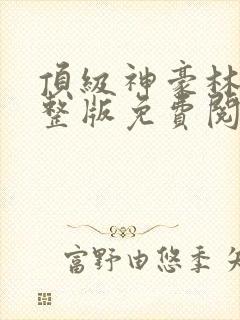 頂級神豪林
整版免費閱
富野由悠季